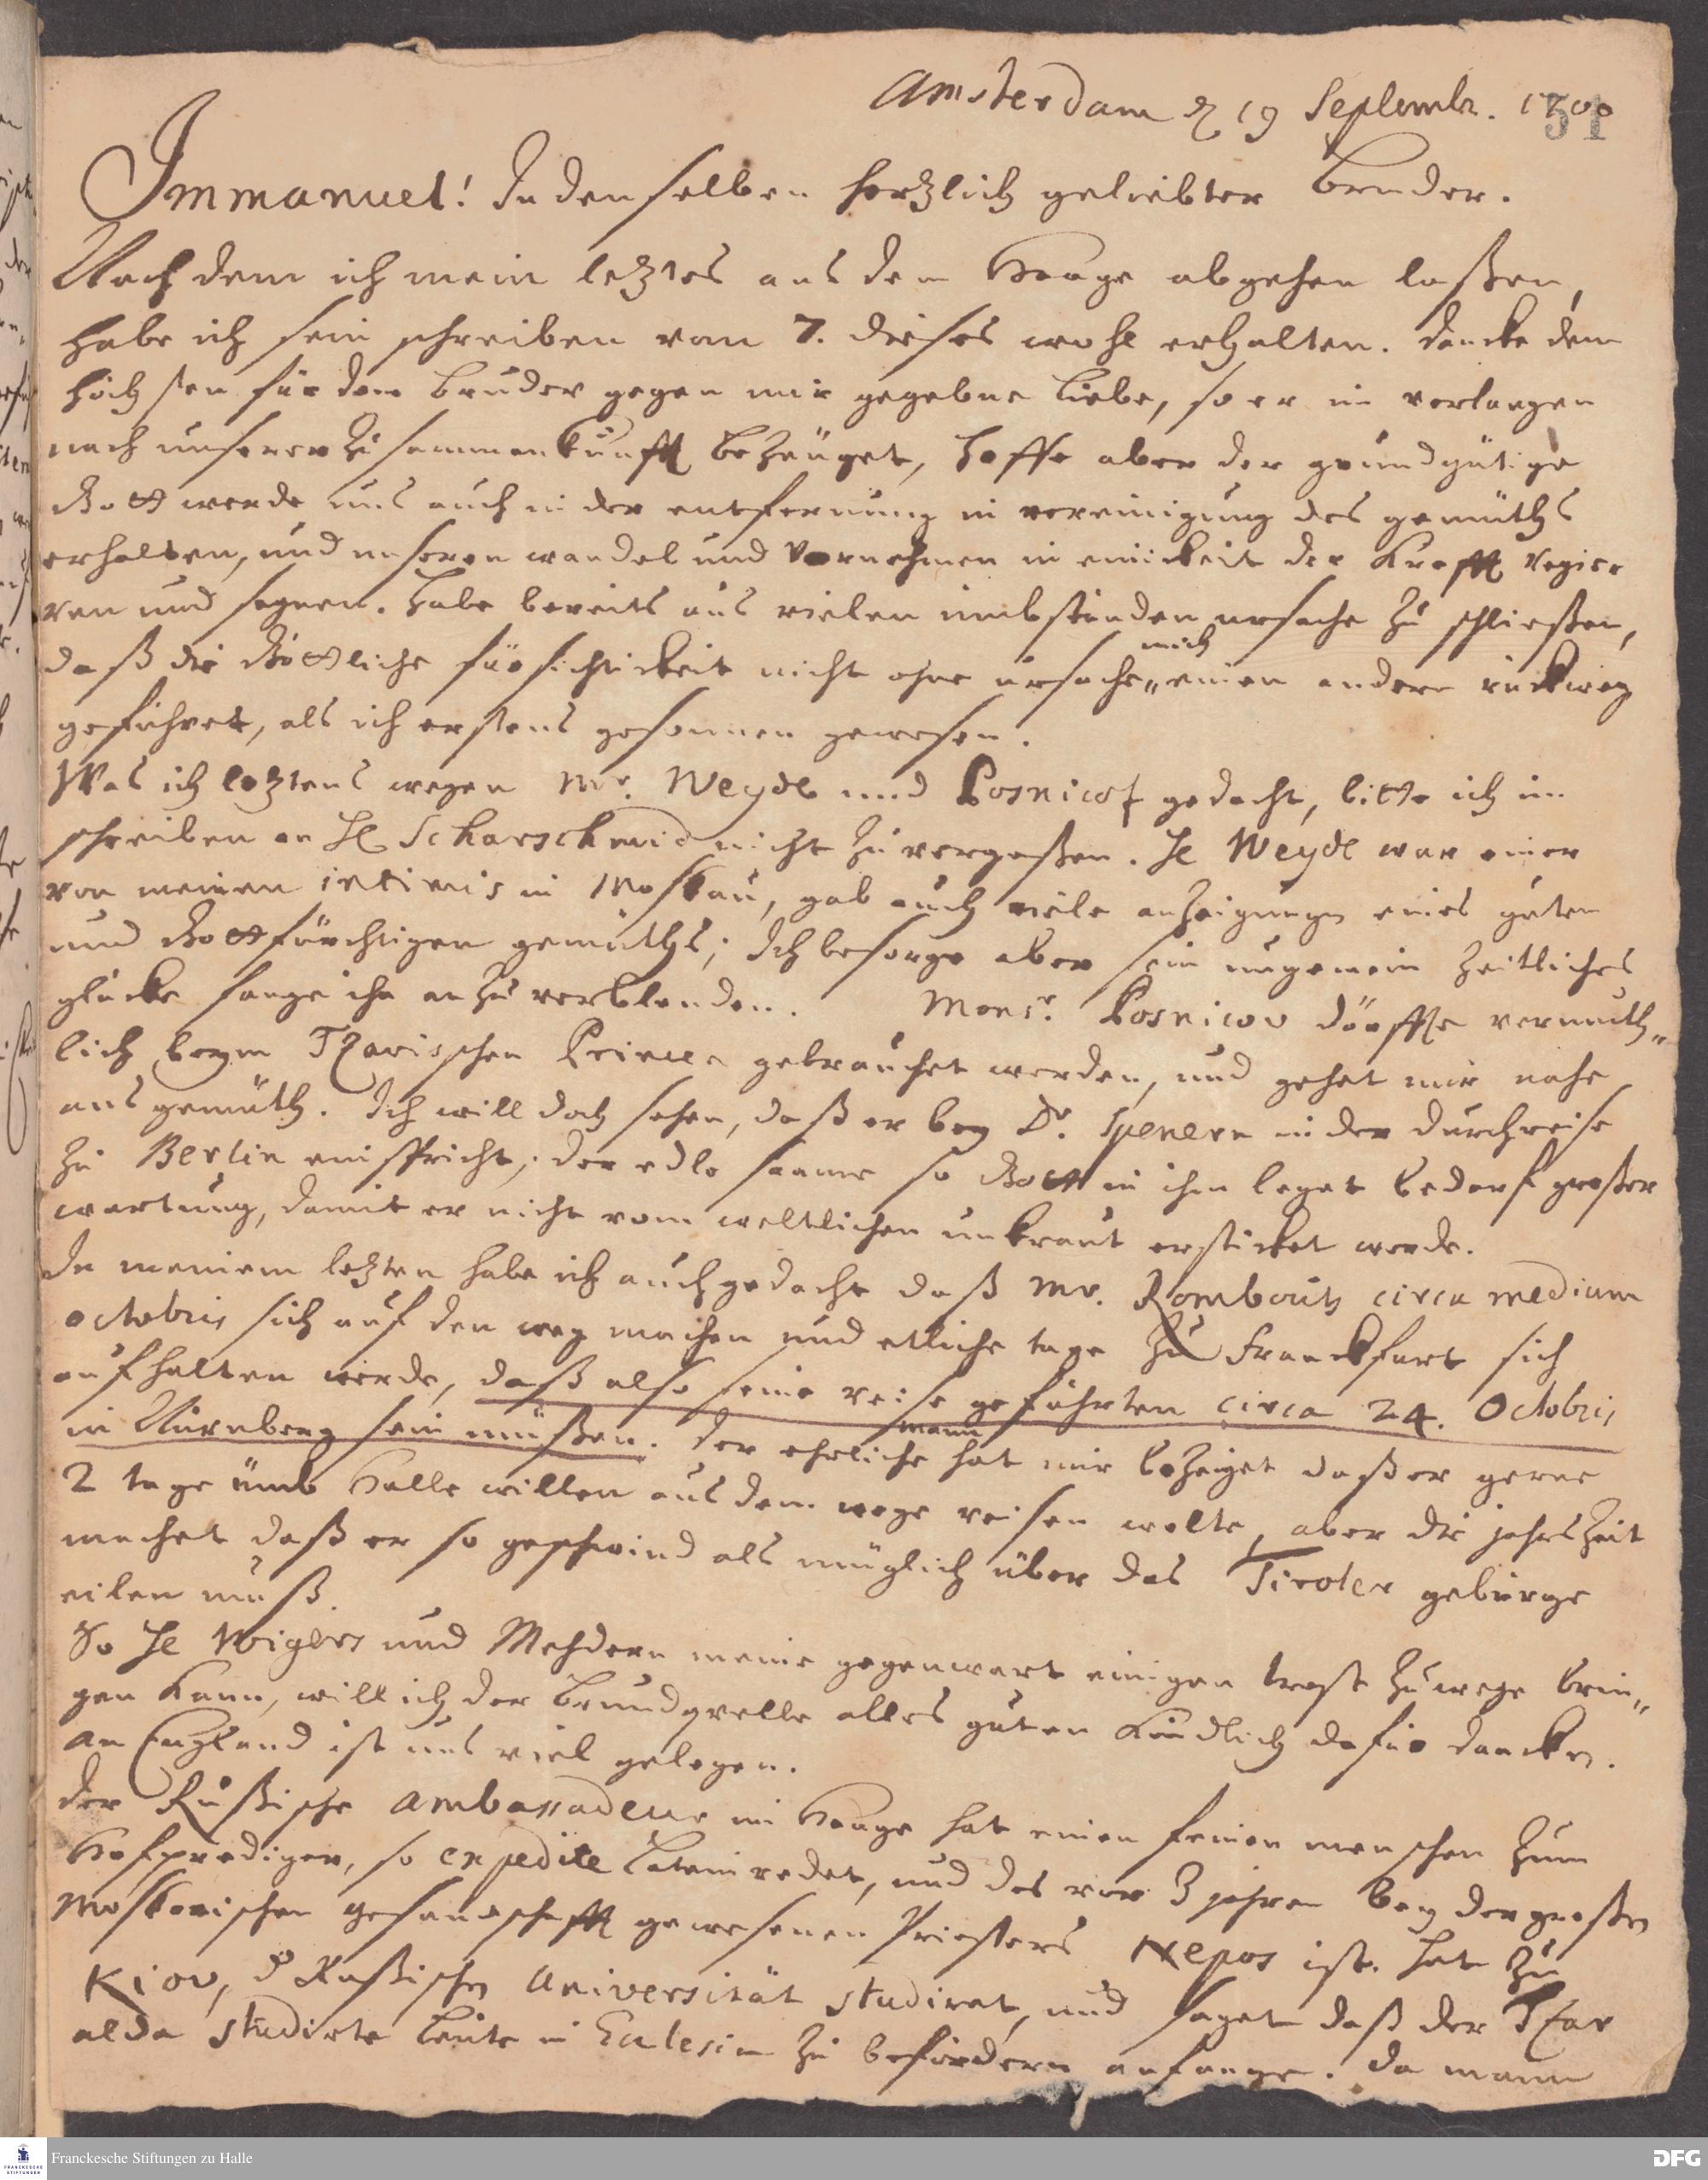 Amsterdam d 19 Septembr. 1700
51
Immanuel! In demselben hertzlich geliebter Bruder.
Nach dem ich mein letztes aus dem Haage abgehen laßen,
habe ich sein schreiben vom 7. dieses wohl erhalten. dancke dem
höchsten für dem Bruder gegen mir gegebne Liebe, so er im verlangen
nach unserer zusammenkunfft bezeuget, hoffe aber der grundgütige
Gott werde uns auch in der entfernung in vereinigung des gemüths
erhalten, und unseren wandel und Vornehmen in einickeit der Krafft regie-
ren und segnen. Habe bereits aus vielen umbständen ursache zu schließen,
daß die Göttliche fürsichtickeit nicht ohne ursache mich einen andern rückweg
geführet, als ich erstens gesonnen gewesen.
Was ich letztens wegen Mr. Weyde und Posnicof gedacht, bitte ich im
schreiben an H Scharschmid nicht zu vergeßen. H Weyde war einer
von meinen intimis in Moskau, gab auch viele anzeigungen eines guten
und Gottfürchtigen gemüths; Ich besorge aber sein ungemein zeitliches
glücke fange ihn an zu verblenden. Monsr. Posnicov dörffte vermuth-
lich beym Tzarischen Princen gebrauchet werden, und gehet mir nahe
ans gemüth. Ich will doch sehen, daß er bey Dr. Spenern in der durchreise
zu Berlin einspricht; der edle saame so Gott in ihm leget bedarf großer
wartung, damit er nicht vom weltlichen unkraut ersticket werde.
In meinem letzten habe ich auch gedacht daß Mr. Rombouts circa medium
octobris sich auf den weg machen und etliche tage zu Franckfurt sich
aufhalten werde, daß also seine reise gefährten circa 24. Octobris
in Nürnberg sein müßen. Der ehrliche mann hat mir bezeiget daß er gerne
2 tage umb Halle willen aus dem wege reisen wolte, aber die jahrszeit
machet daß er so geschwind als müglich über das Tiroler gebürge
eilen muß.
So H Wigers und Mehdern meine gegenwart einigen trost zuwege brin-
gen kann, will ich der Grundqvelle alles guten kindlich dafür dancken.
An England ist uns viel gelegen.
Der Rußische Ambassadeur im Haage hat einen feinen menschen zum
Hofprediger, so expedite Latein redet, und des vor 3 jahren bey der großen
Moskovischen gesandschafft gewesenen Priesters Nepos ist. hat zu
Kiov, d Rußischen Universität studiret, und saget daß der Tzar
alda studirte Leute in Eclesia zu befördern anfange. Da mann
Franckesche Stiftungen zu Halle
DFG